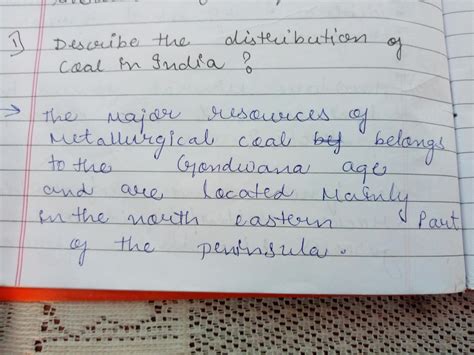 1) Describe the distribution of
Coal in India ?
→ The major resources of
Metallurgical coal belongs
to the Gondwana age
and are located Mainly
in the north eastern Part
of the peninsula.